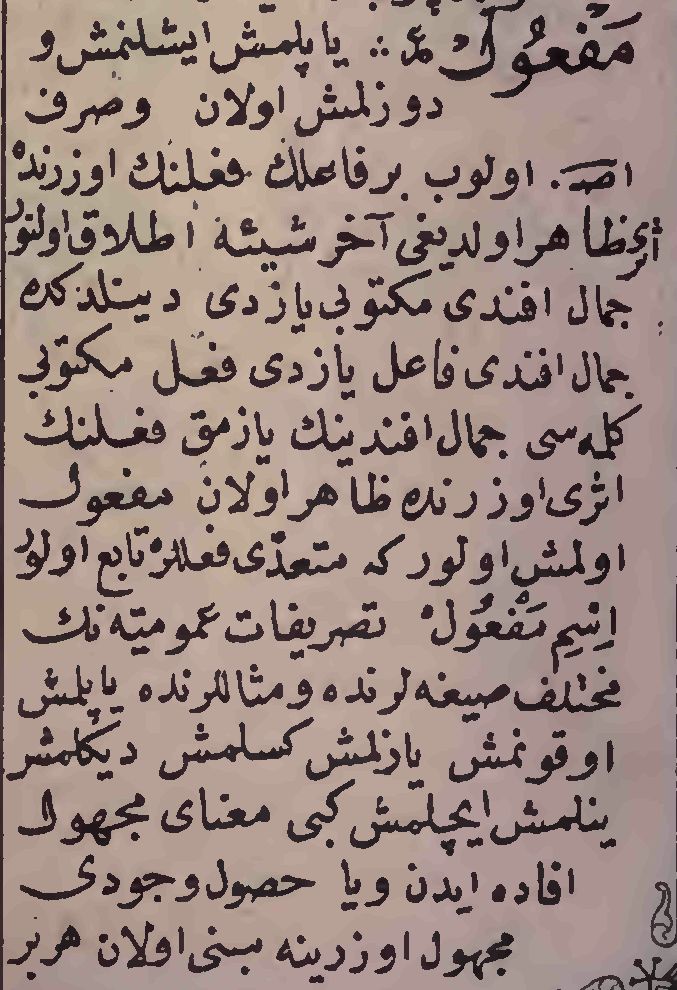 مَفْعُولْ ع :: ياپلمش ايشلنمش و
دوزلمش اولان وصرف
اصـ. اولوب برفاعلك فعلنك اوزرنده
اثرى ظاهر اولديغى آخر شيئه اطلاق اولنور
جمال افندى مكتوبى يازدى دينلدكده
جمال افندى فاعل يازدى فعل مكتوبى
كلمه سى جمال افندينك يازمق فعلنك
اثرى اوزرنده ظاهر اولان مفعول
اولمش اولور كه متعدّى فعللره تابع اولور
اِسْمِ مَفْعُولْ تصريفات عموميته نك
مختلف صيغه لرنده ومثاللرنده ياپلمش
اوقونمش يازلمش كسلمش ديكلمش
ينلمش ايچلمش كبى معناى مجهول
افاده ايدن ويا حصول وجودى
مجهول اوزرينه مبنى اولان هربر